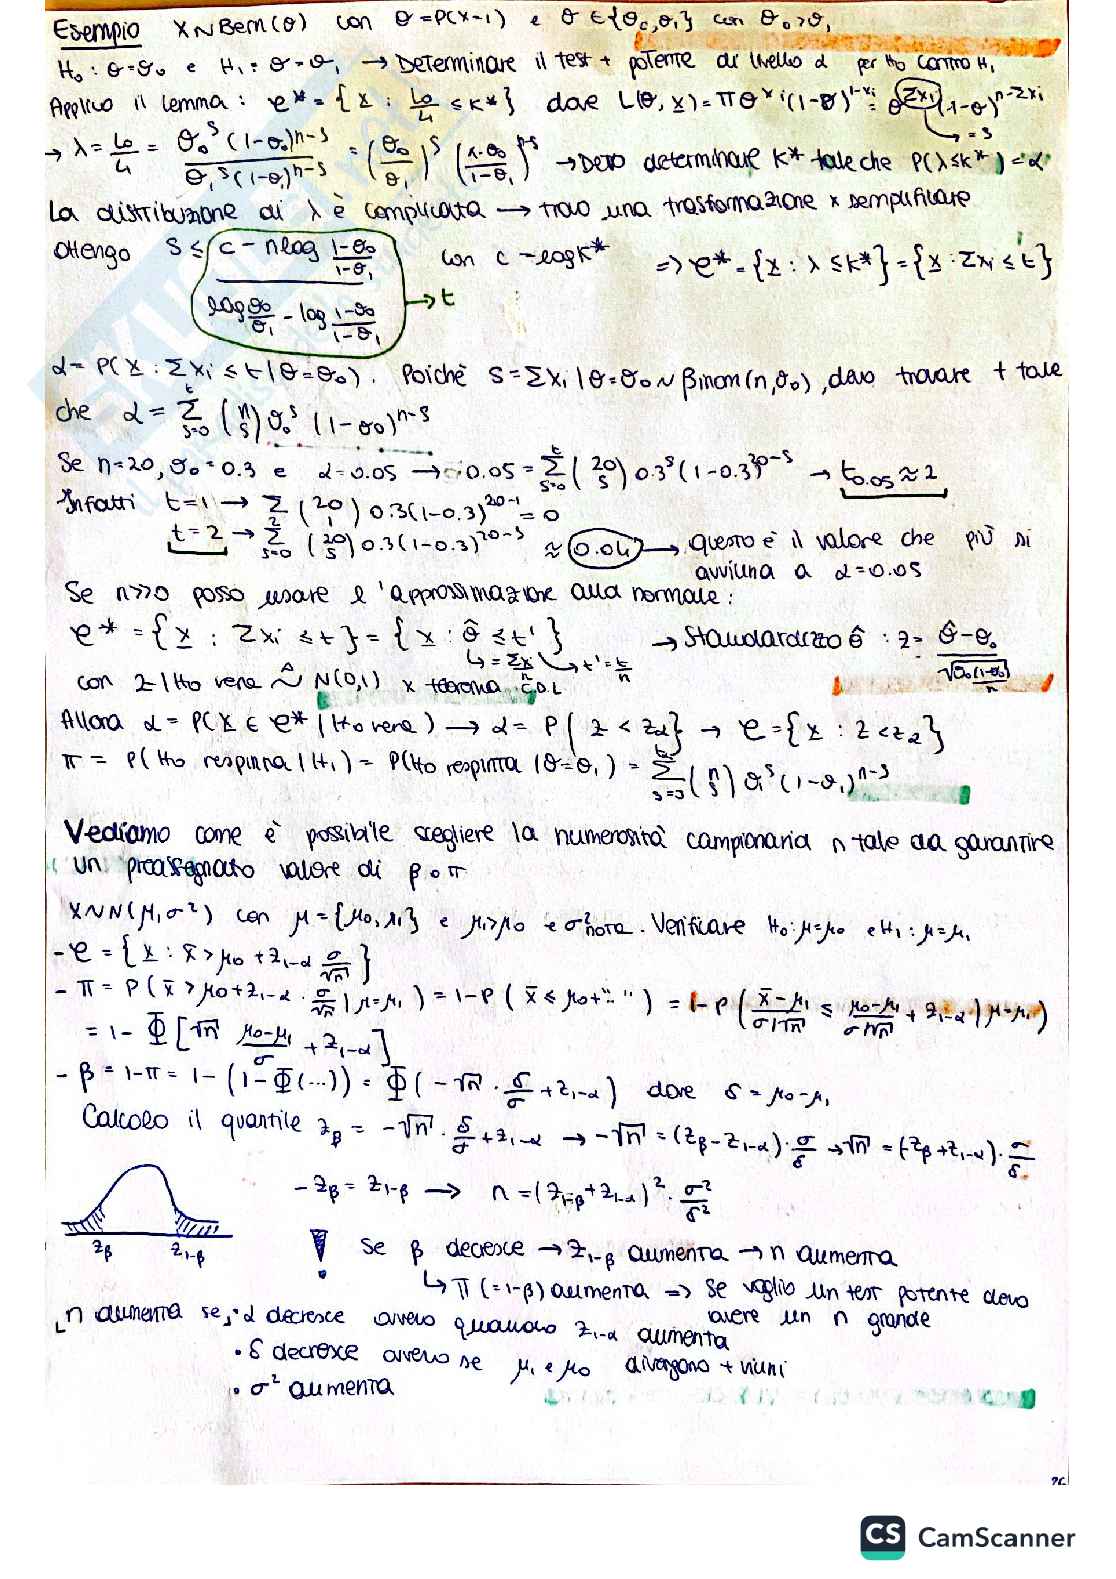 Esempio X~Bern(θ) con θ=P(X=1) e θ∈{θ₀,θ₁} con θ₀>θ₁
H₀: θ=θ₀ e H₁: θ=θ₁ → Determinare il test + potente di livello α per H₀ contro H₁
Applico il lemma: e* = {x : L₀/L₁ ≤ K*} dove L(θ,x) = πθ^xi (1-θ)^1-xi = θ^Σxi (1-θ)^n-Σxi → = s
→ λ = L₀/L₁ = θ₀^s (1-θ₀)^n-s / θ₁^s (1-θ₁)^n-s = (θ₀/θ₁)^s (1-θ₀/1-θ₁)^n-s → Devo determinare K* tale che P(λ≤K*) = α
La distribuzione di λ è complicata → trovo una trasformazione x semplificare
Ottengo S ≤ (c - nlog 1-θ₀/1-θ₁) / (log θ₀/θ₁ - log 1-θ₀/1-θ₁) → t con c=logK* ⇒ e* = {x : λ ≤ K*} = {x : Σxi ≤ t}
α = P(x : Σxi ≤ t | θ=θ₀). Poichè S = Σxi | θ=θ₀ ~ Binom(n,θ₀), devo trovare t tale
che α = Σ_{s=0}^t (n s) θ₀^s (1-θ₀)^n-s
Se n=20, θ₀=0.3 e α=0.05 → 0.05 = Σ_{s=0}^t (20 s) 0.3^s (1-0.3)^20-s → t₀.₀₅ ≈ 2
Infatti t=1 → Σ (20 1) 0.3(1-0.3)^20-1 = 0
t=2 → Σ_{s=0}^2 (20 s) 0.3(1-0.3)^20-s ≈ 0.04 → questo è il valore che più si
avvicina a α=0.05
Se n>>0 posso usare l'approssimazione alla normale:
e* = {x : Σxi ≤ t} = {x : θ̂ ≤ t'} → Standardizzo θ̂ : z = (θ̂-θ₀)/√(θ₀(1-θ₀)/n)
↳ = Σxi/n → t' = t/n
con z | H₀ vera ~ N(0,1) x teorema C.D.L
Allora α = P(x ∈ e* | H₀ vera) → α = P{z < zα} → e = {x : z < zα}
π = P(H₀ respinta | H₁) = P(H₀ respinta | θ=θ₁) = Σ_{s=0}^t (n s) θ₁^s (1-θ₁)^n-s
Vediamo come è possibile scegliere la numerosità campionaria n tale da garantire
un preassegnato valore di β o π
X~N(μ,σ²) con μ={μ₀,μ₁} e μ₁>μ₀ e σ² nota. Verificare H₀: μ=μ₀ e H₁: μ=μ₁
- e = {x : x̄ > μ₀ + z₁₋α σ/√n}
- π = P(x̄ > μ₀+z₁₋α · σ/√n | μ=μ₁) = 1-P(x̄ ≤ μ₀+".. ") = 1-P(x̄-μ₁/σ/√n ≤ μ₀-μ₁/σ/√n + z₁₋α | μ=μ₁)
= 1- Φ[√n μ₀-μ₁/σ + z₁₋α]
- β = 1-π = 1-(1-Φ(...)) = Φ(-√n · δ/σ + z₁₋α) dove δ = μ₀-μ₁
Calcolo il quantile zβ = -√n · δ/σ + z₁₋α → -√n = (zβ - z₁₋α) · σ/δ → √n = (-zβ+z₁₋α) · σ/δ
-zβ = z₁₋β → n = (z₁₋β + z₁₋α)² · σ²/δ²
zβ z₁₋β
! Se β decresce → z₁₋β aumenta → n aumenta
↳ π (=1-β) aumenta ⇒ se voglio un test potente devo
avere un n grande
n aumenta se: · α decresce ovvero quando z₁₋α aumenta
· δ decresce ovvero se μ₁ e μ₀ divengono + vicini
· σ² aumenta
CS CamScanner